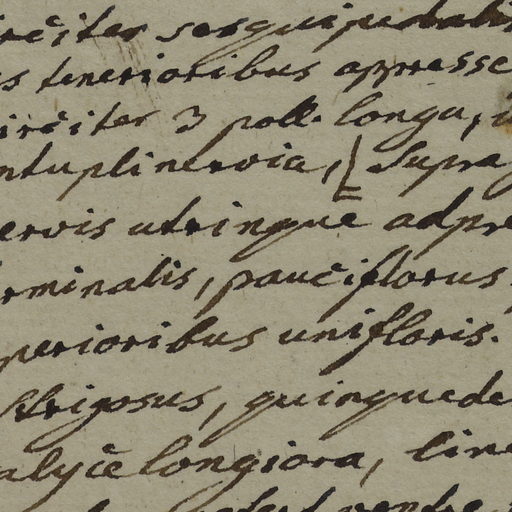 circiter sesquipedalis
s tenerioribus appresse
circiter 3 poll. longa,
ntuplinervia, Supra
ervis utrinque adpre
rminalis, pauciflorus
perioribus unifloris.
Strigosus, quinquede
alyce longiora, line